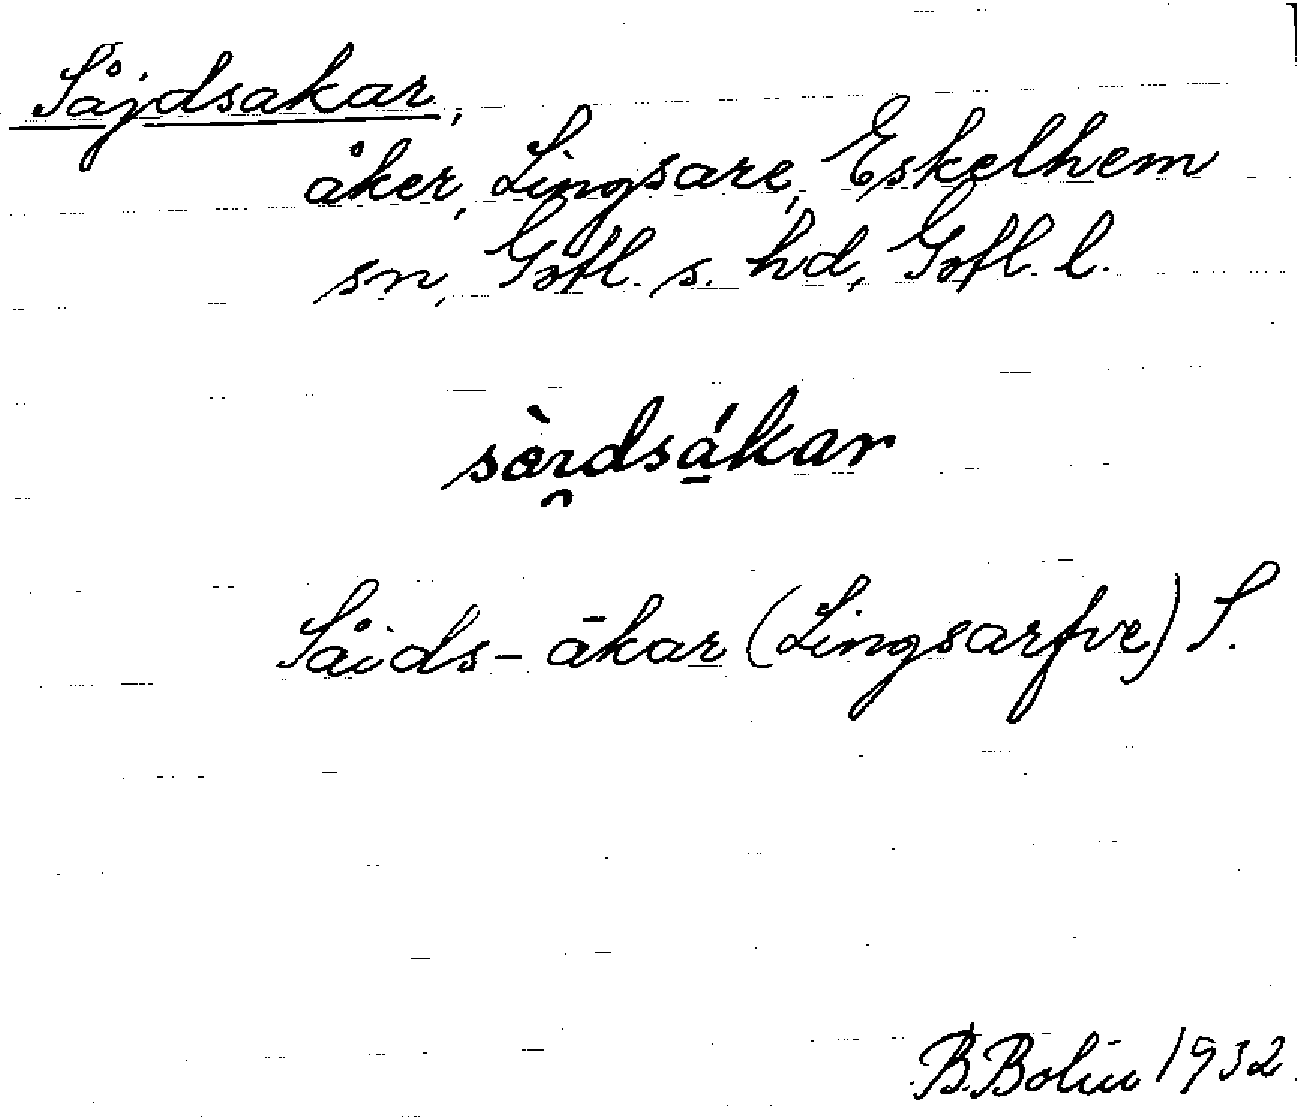 Såjdsakar,
åker, Lingsare, Eskelhem
sn, Gotl. s. hd, Gotl. l.
sòı̯dsá̱kar
Såids-ākar (Lingsarfve) S.
B. Bolin 1932